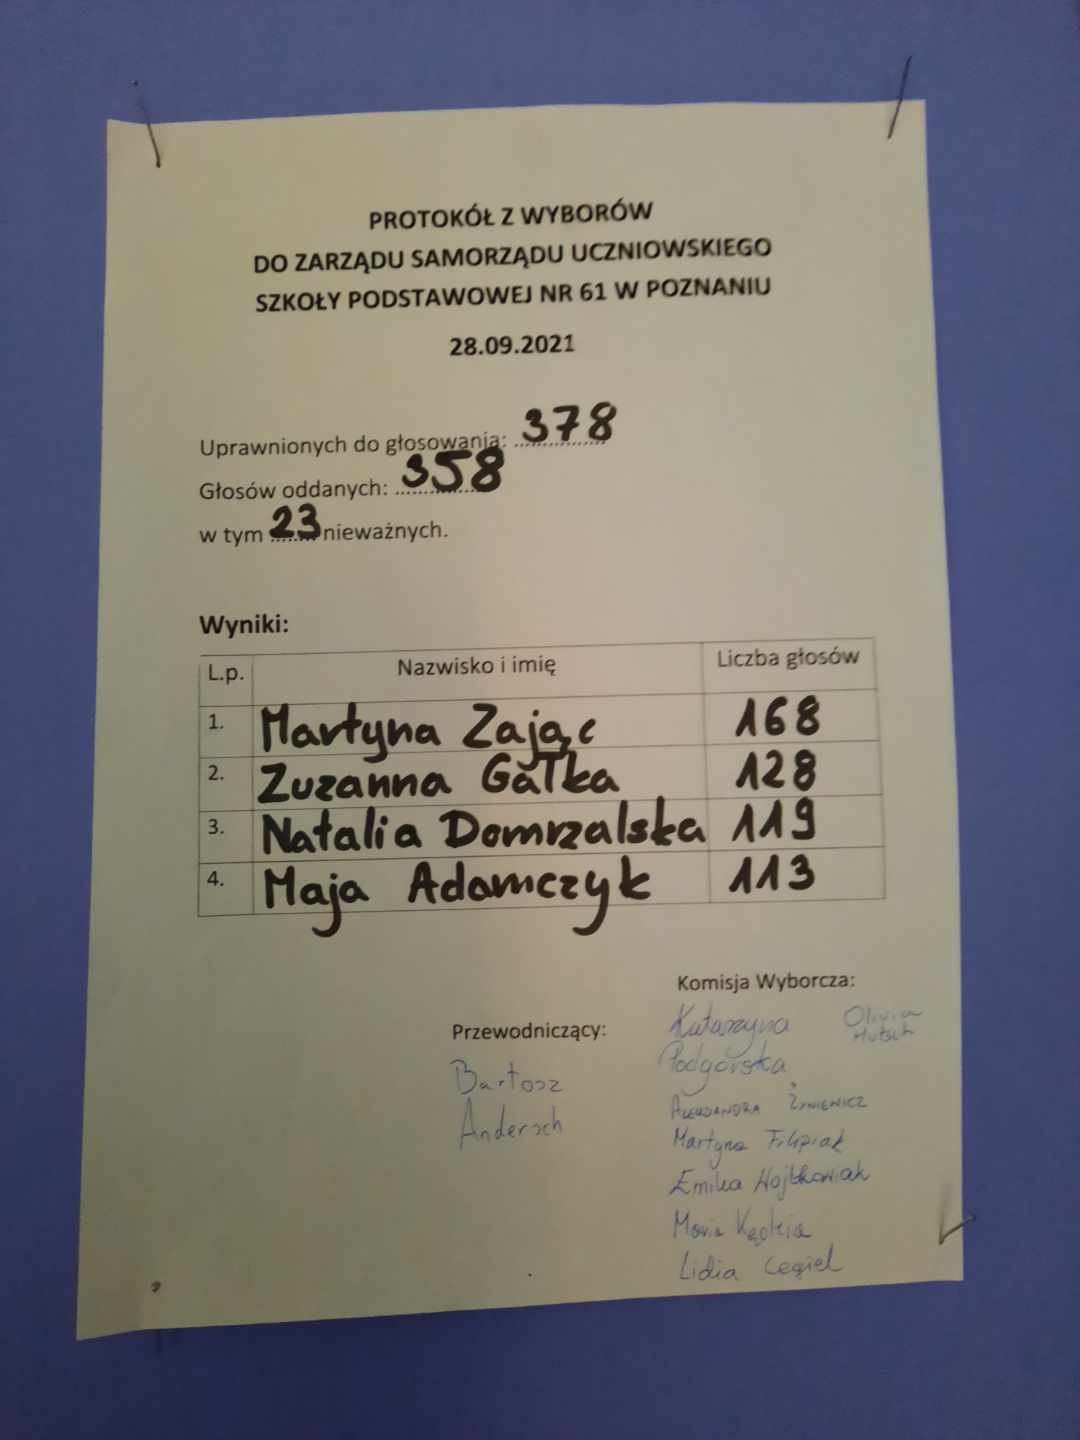 PROTOKÓŁ Z WYBORÓW
DO ZARZĄDU SAMORZĄDU UCZNIOWSKIEGO
SZKOŁY PODSTAWOWEJ NR 61 W POZNANIU
28.09.2021
Uprawnionych do głosowania: 378
Głosów oddanych: 358
w tym 23 nieważnych.
Wyniki:
L.p. Nazwisko i imię Liczba głosów
1. Martyna Zając 168
2. Zuzanna Gałka 128
3. Natalia Domrzalska 119
4. Maja Adamczyk 113
Przewodniczący:
Bartosz
Andersch
Komisja Wyborcza:
Katarzyna
Podgórska
Olivia
ALEKSANDRA ŻYNIEWICZ
Martyna Filipiak
Emilia Wojtkowiak
Maria
Lidia Cegiel